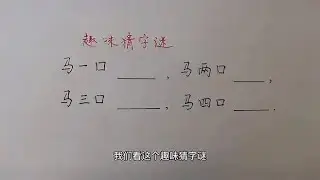 趣味猜字谜
马一口 ____ , 马两口 ____ ,
马三口 ____ , 马四口 ____ .
我们看这个趣味猜字谜